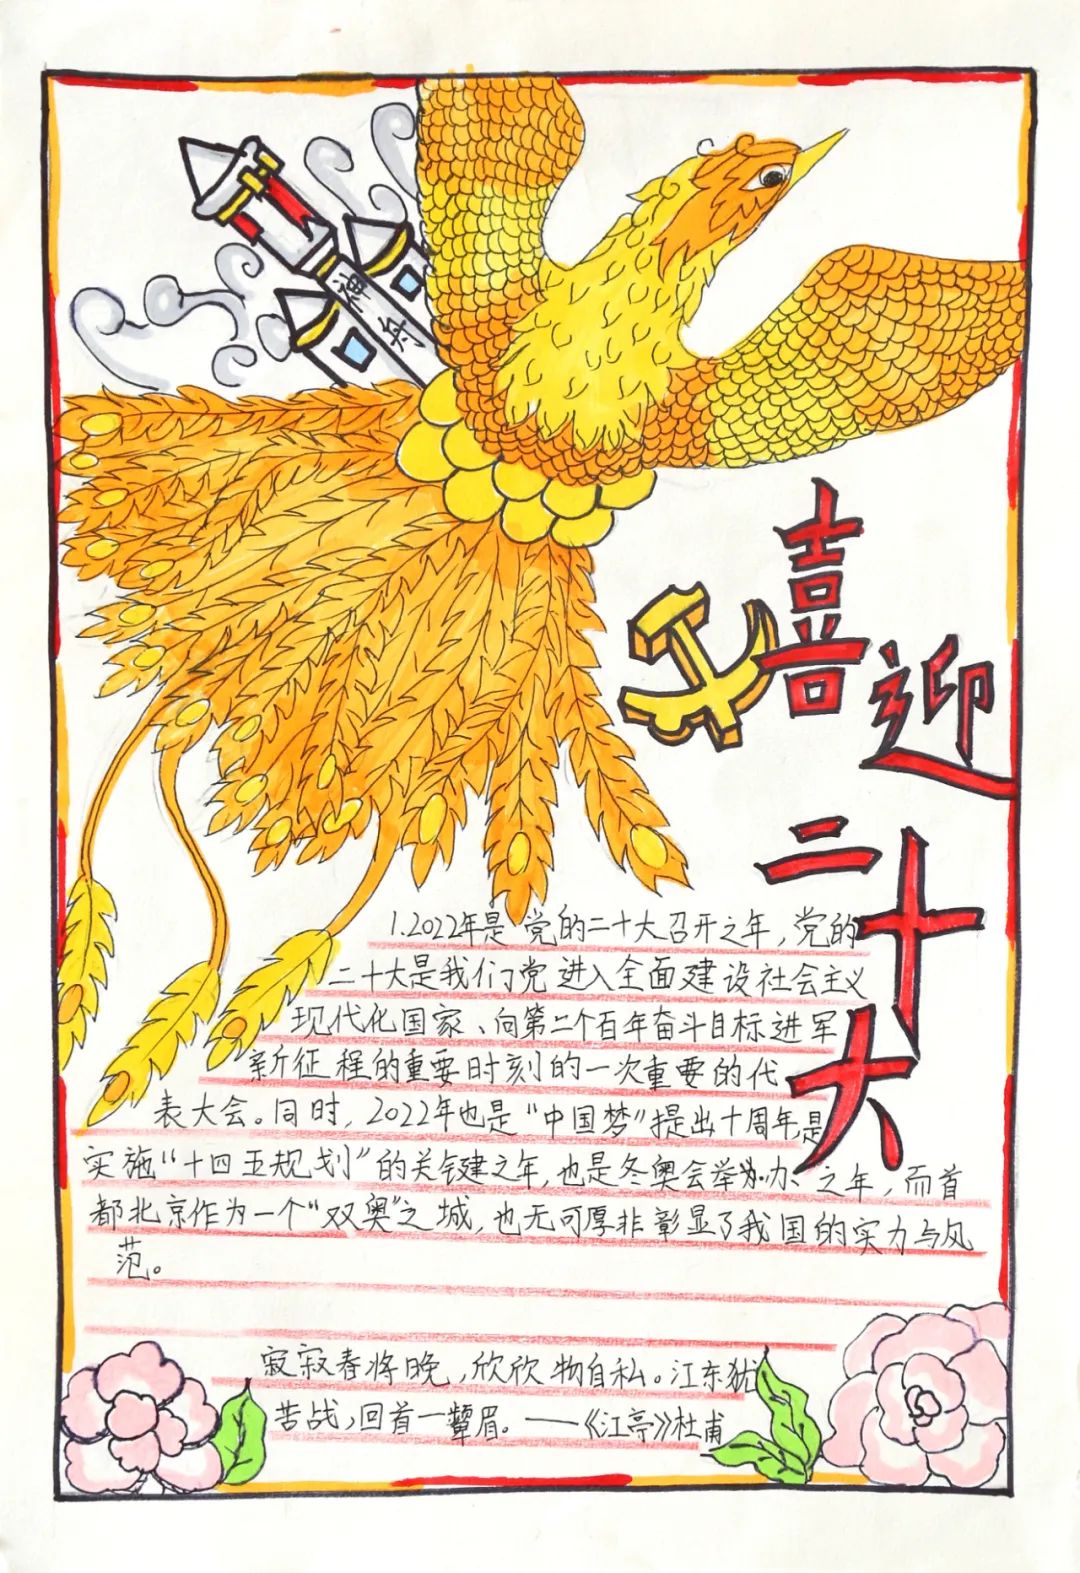 神舟
喜迎二十大
1.2022年是党的二十大召开之年，党的
二十大是我们党进入全面建设社会主义
现代化国家、向第二个百年奋斗目标进军
新征程的重要时刻的一次重要的代
表大会。同时，2022年也是“中国梦”提出十周年,是
实施“十四五规划”的关键之年，也是冬奥会举办之年，而首
都北京作为一个“双奥”之城，也无可厚非彰显了我国的实力与风
范。
寂寂春将晚，欣欣物自私。江东犹
苦战，回首一颦眉。——《江亭》杜甫